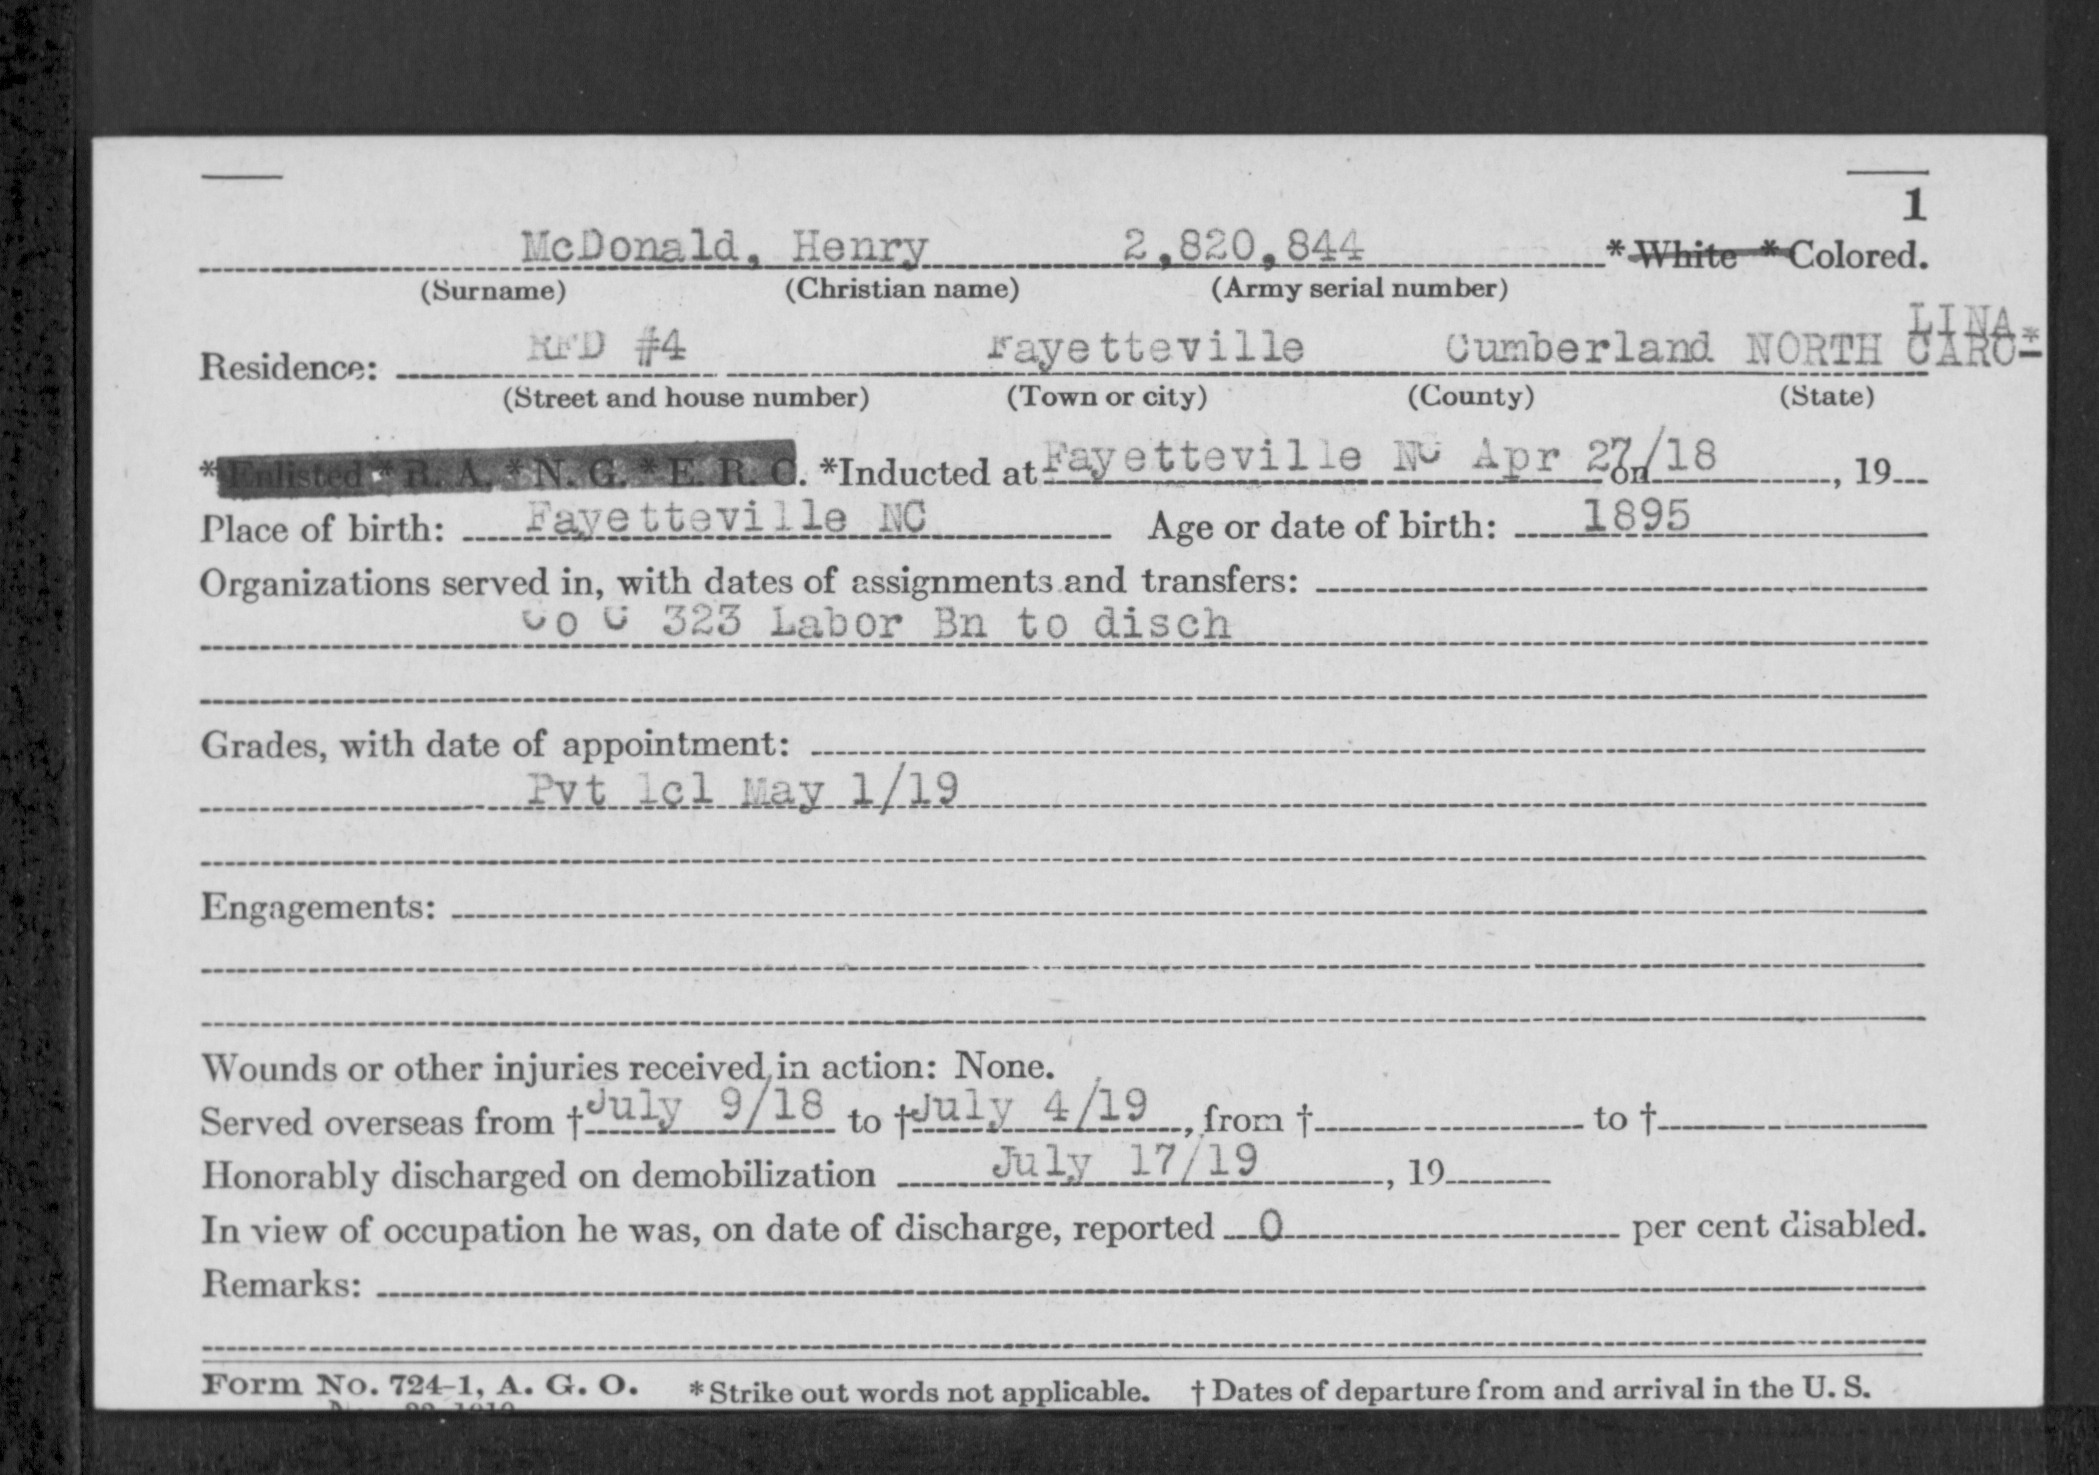 1
McDonald, Henry 2,820,844 *White *Colored.
(Surname) (Christian name) (Army serial number)
LINA
Residence: RFD #4 Fayetteville Cumberland NORTH CARO-*
(Street and house number) (Town or city) (County) (State)
*Enlisted *R. A. *N. G. *E. R. C. *Inducted at Fayetteville NC Apr 27/18 on, 19
Place of birth: Fayetteville NC Age or date of birth: 1895
Organizations served in, with dates of assignments and transfers:
Co C 323 Labor Bn to disch
Grades, with date of appointment:
Pvt 1cl May 1/19
Engagements:
Wounds or other injuries received in action: None.
Served overseas from † July 9/18 to † July 4/19, from † to †
Honorably discharged on demobilization July 17/19, 19
In view of occupation he was, on date of discharge, reported 0 per cent disabled.
Remarks:
Form No. 724-1, A. G. O. *Strike out words not applicable. † Dates of departure from and arrival in the U. S.